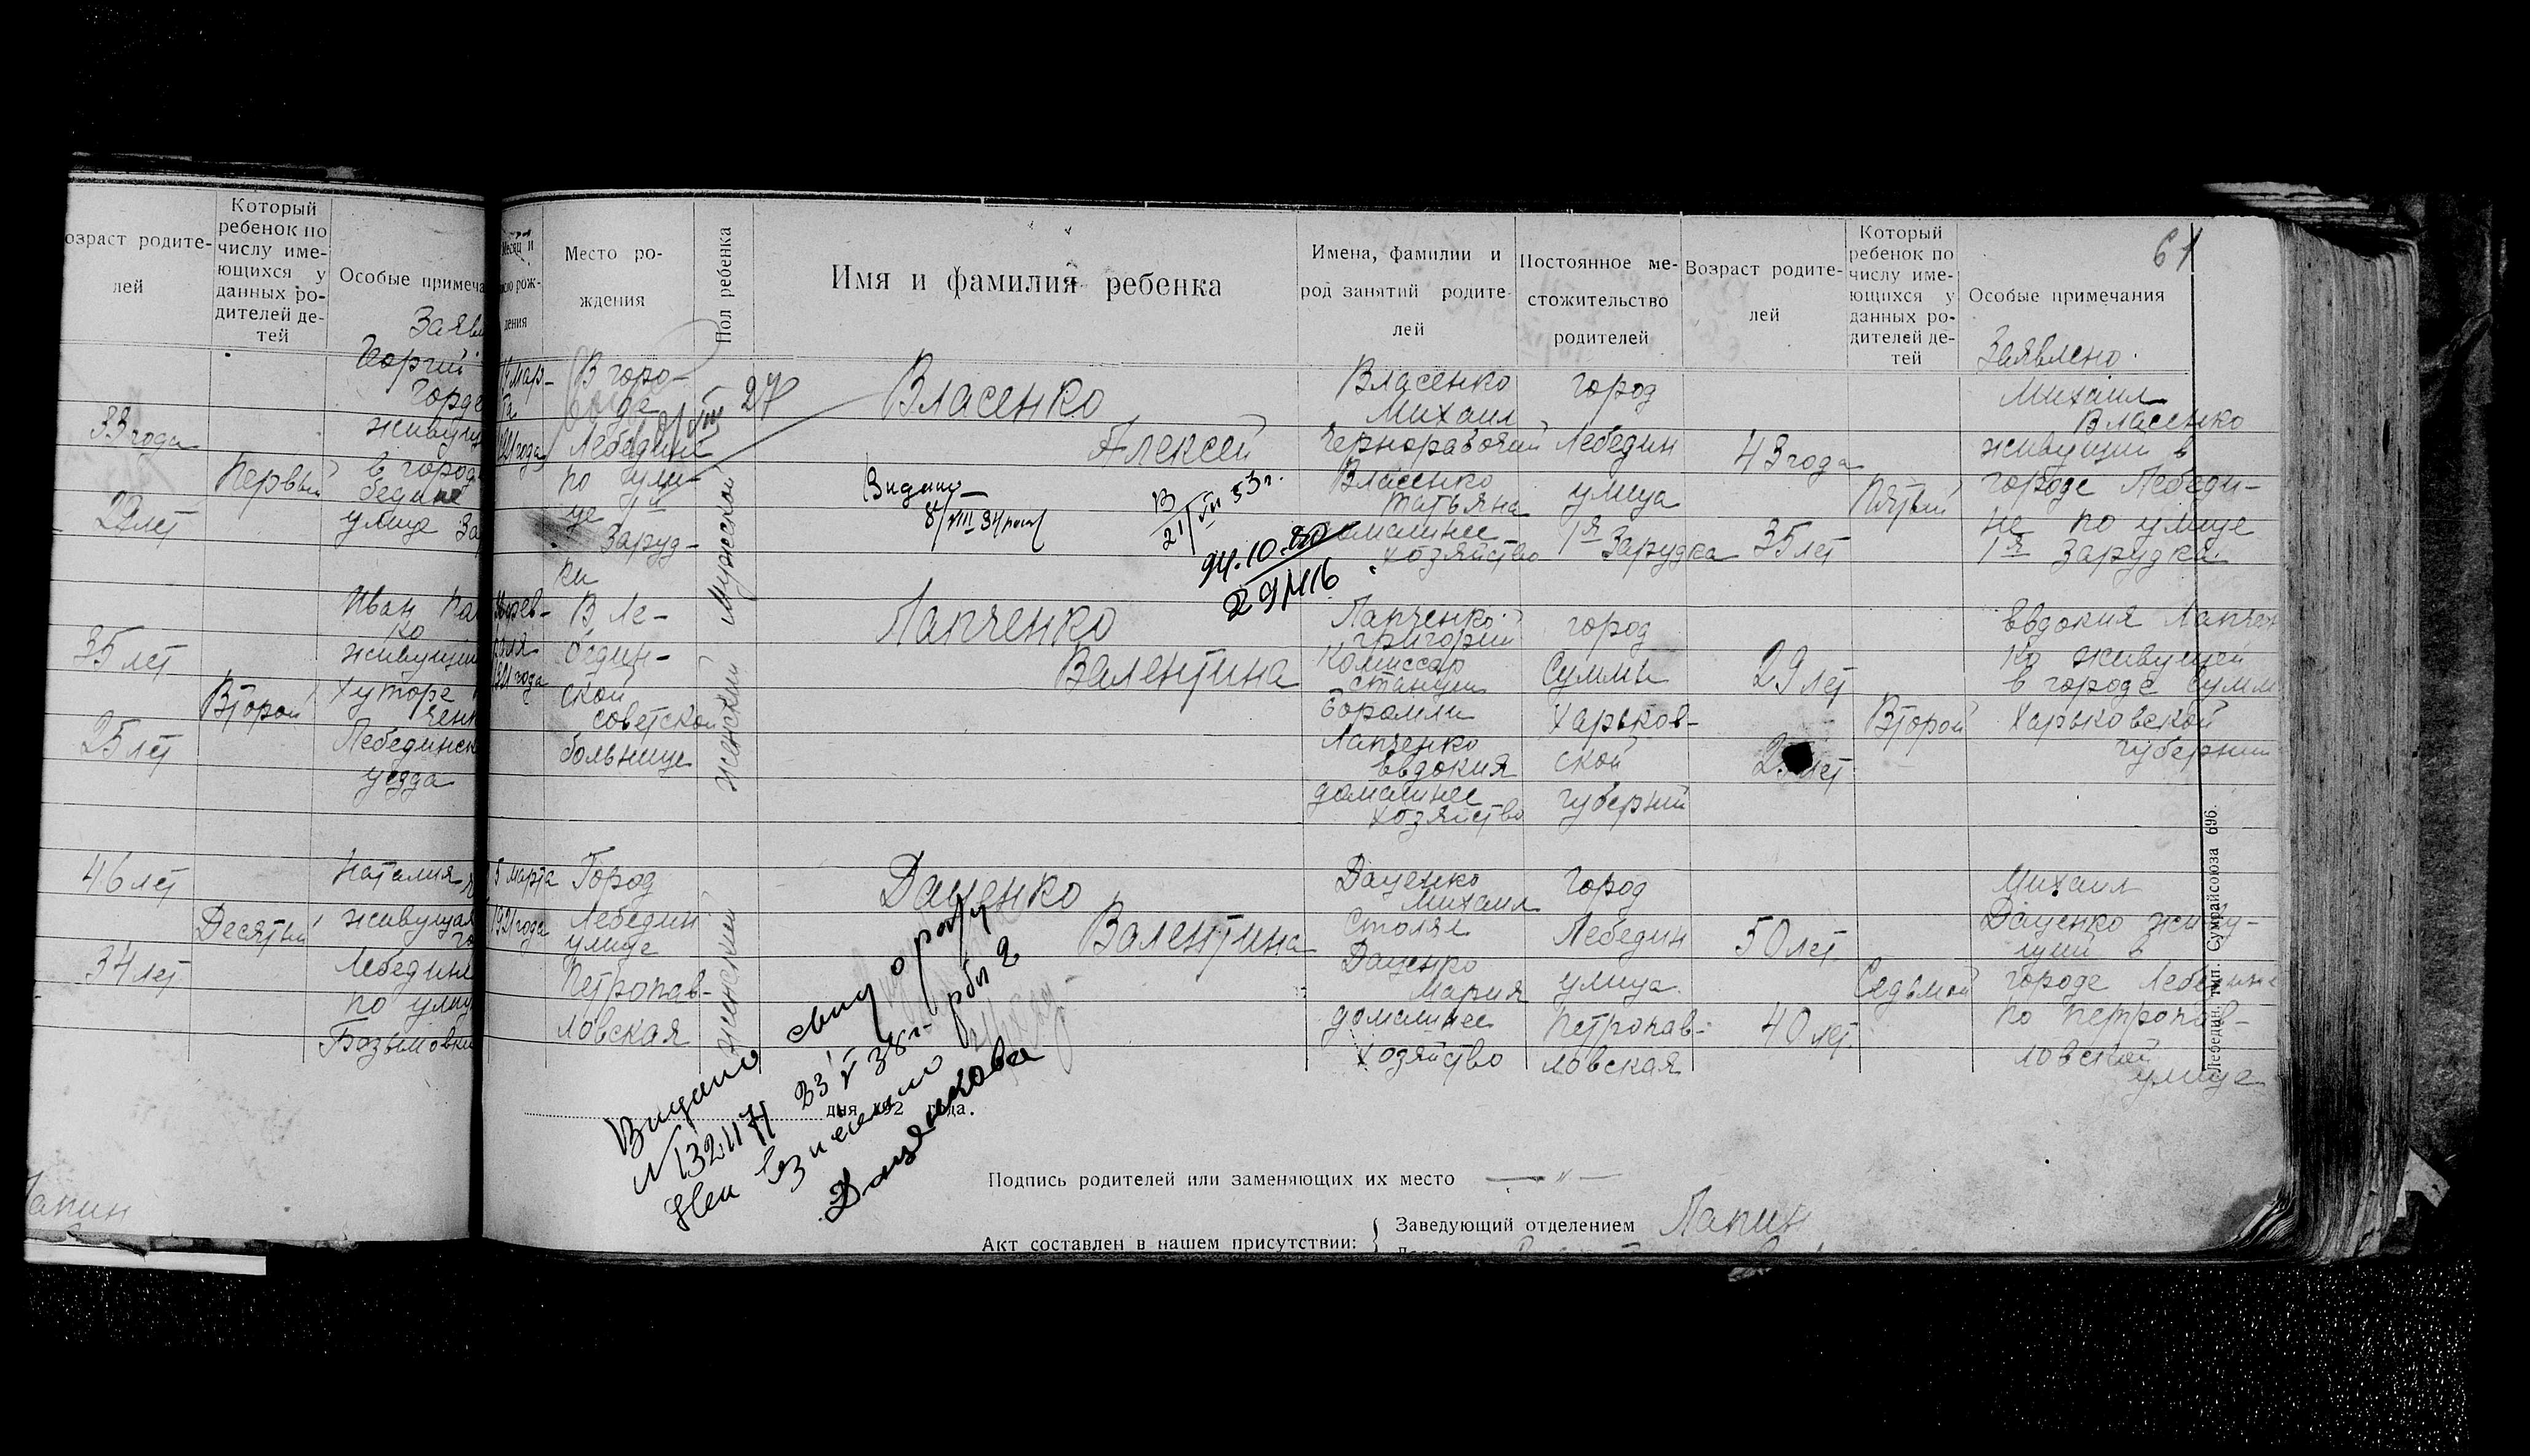 озраст родите-
лей
Который
ребенок по
числу име-
ющихся у
данных ро-
дителей де-
тей
Особые примеча
Заявл
Георгий
Горде
живущ
33 года
в город
Первый
бедине
29 лет
улице За
Иван Па
ко
живущий
35 лет
Хуторе
Второй
ченк
25 лет
Лебединск
уезда
46 лет
Наталия
живущая
Десятый
го
34 лет
Лебедине
по улиц
Базымовки
Лапин
61
Месяц и
число рож-
дения
Место ро-
ждения
Пол ребенка
Имя и фамилия ребенка
Имена, фамилии и
род занятий родите-
лей
Постоянное ме-
стожительство
родителей
Возраст родите-
лей
Который
ребенок по
числу име-
ющихся у
данных ро-
дителей де-
тей
Особые примечания
Заявлено
мар-
та
1921 года
В горо-
де
Лебедине
по ули-
це 1й
Заруд-
ки
Мужской
27
Власенко
Алексей
Видано
8/VIII 34
21/VII 53 г.
94.10.80
29/116
Власенко
Михаил
чернорабочий
Власенко
Татьяна
домашнее
хозяйство
город
Лебедин
улица
1я Зарудка
43 года
35 лет
Пятый
Михаил
Власенко
живущий в
городе Лебеди-
не по улице
1я Зарудка
фев-
раля
1921 года
В Ле-
бедин-
ской
советской
больнице
женский
Лапченко
Валентина
Лапченко
Григорий
Комиссар
станции
Боромли
Лапченко
Евдокия
домашнее
хозяйство
город
Суммы
Харьков-
ской
губернии
29 лет
лет
Второй
Евдокия Лапчен
ко живущей
в городе Сумм
Харьковской
губернии
5 марта
1921 года
Город
Лебедин
улице
Петропав-
ловская
женский
Даценко
Валентина
Даценко
Михаил
Столяр
Даценко
Мария
домашнее
хозяйство
город
Лебедин
улица
Петропав-
ловская
50 лет
40 лет
Седьмой
Михаил
Даценко живу-
щий в
городе Лебедине
по Петропав-
ловской
улице
Видано свид о рожд
№132117 23/V 38 г.
дня 192 года.
Подпись родителей или заменяющих их место — " —
Акт составлен в нашем присутствии:
Заведующий отделением Лапин
Лебедин. тип. Сумрайсоюза 696.